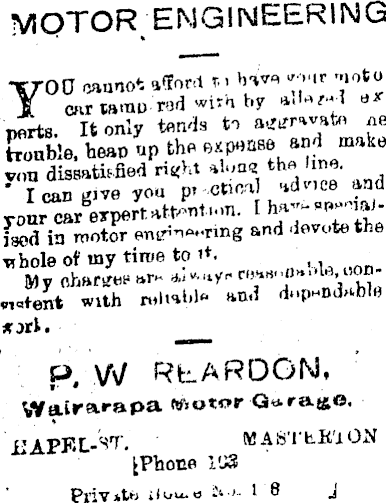 MOTOR ENGINEERING
YOU cannot afford to have your moto
car tampered with by alleged ex
perts. It only tends to aggravate he
trouble, heap up the expense and make
you dissatisfied right along the line.
I can give you practical advice and
your car expert attention. I have special-
ised in motor engineering and devote the
whole of my time to it.
My charges are always reasonable, con-
sistent with reliable and dependable
work.
P. W REARDON,
Wairarapa Motor Garage,
HAPEL-ST. MASTERTON
Phone
Private House No.